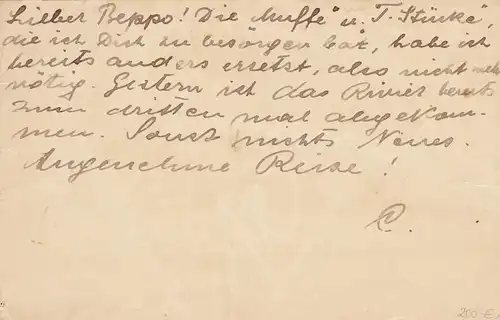 Lieber Beppo! Die „Muffe“ u. „T. Stücke“,
die ich Dich zu besorgen bat, habe ich
bereits anders ersetzt, also nicht mehr
nötig. Gestern ist das Rivier bereits
zum dritten mal abgekom-
men. Sonst nichts Neues.
Angenehme Reise!
C.
200 €